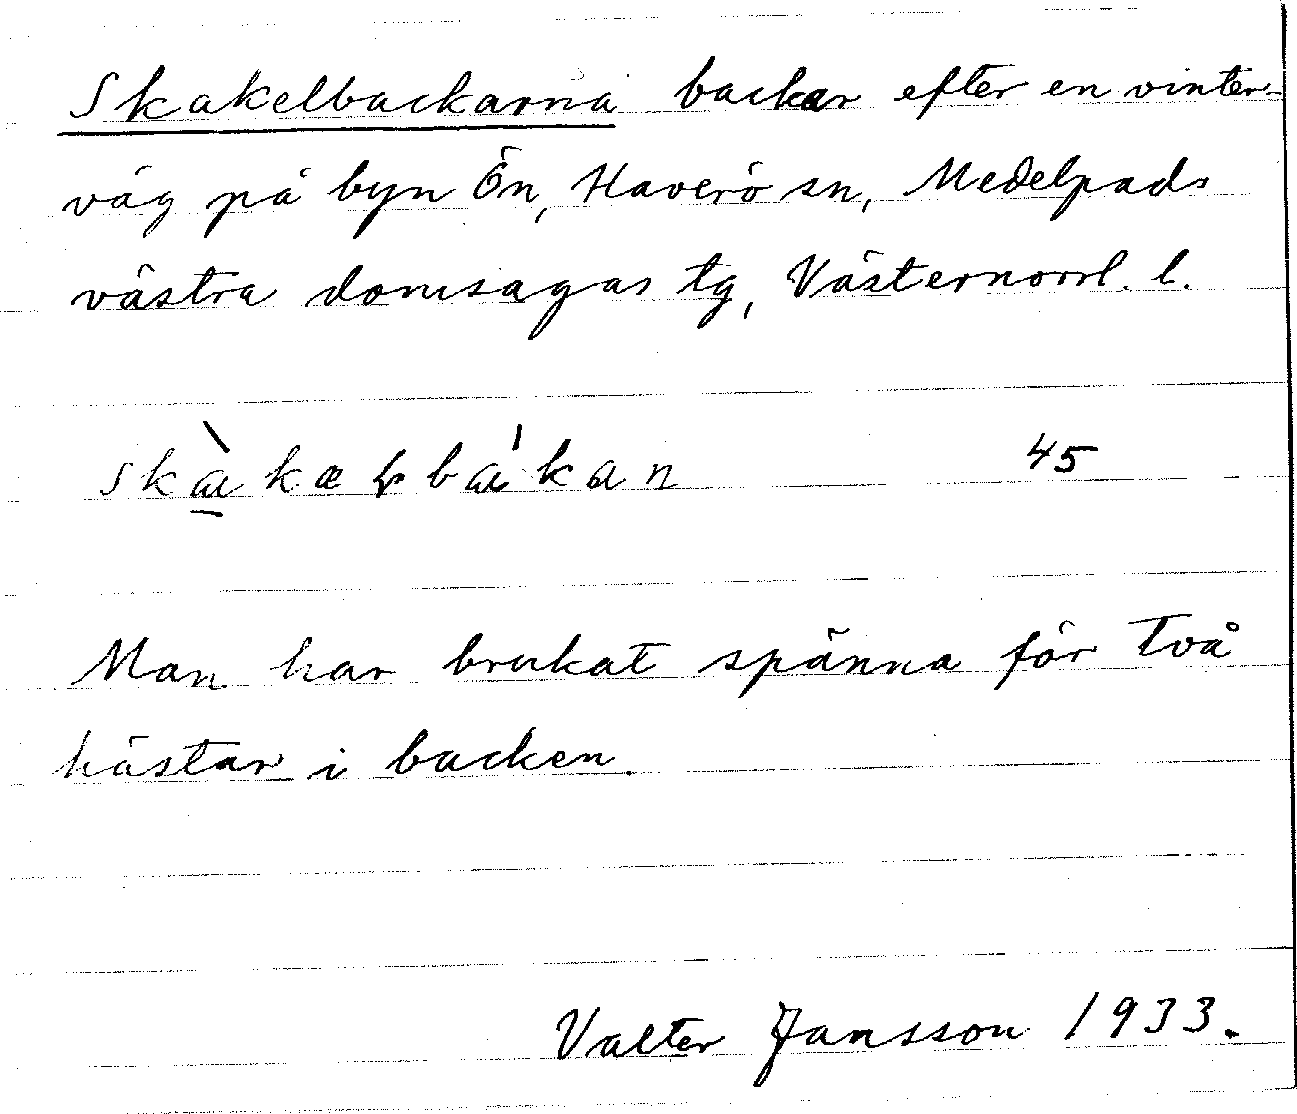 Skakelbackarna backar efter en vinter-
väg på byn Ön, Haverö sn, Medelpads
västra domsagas tg, Västernorrl. l.
45
Man har brukat spänna för två
hästar i backen.
Valter Jansson 1933.